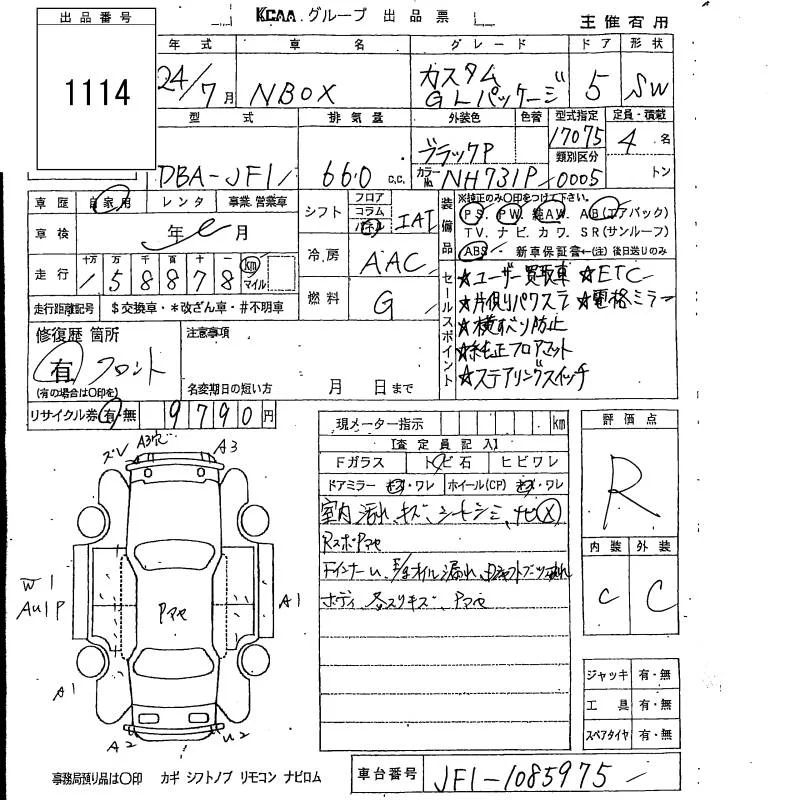 出品番号
1114
KCAA グループ 出品票
主催者用
年式 車名 グレード ドア 形状
24/7月 NBOX カスタム GLパッケージ 5 SW
型式 排気量 外装色 色替 型式指定 定員・積載
DBA-JF1 660 c.c. ブラックP 17075 4名
カラーNo NH731P 類別区分 0005 トン
車歴 自家用 レンタ 事業・営業車
シフト フロア コラム インパネ IAT
装備品 ※校正のみ○印をつけて下さい。
PS. PW. 純AW. AB(エアバック)
TV. ナビ. カワ. SR(サンルーフ)
ABS・ 新車保証書←(注)後日送りのみ
車検 年 月
冷房 AAC
走行 十万 万 千 百 十 一 km マイル
158878
燃料 G
走行距離記号 $交換車・*改ざん車・#不明車
セールスポイント
★ユーザー買取車 ★ETC
★片側パワスラ ★電格ミラー
★横すべり防止
★純正フロアマット
★ステアリングスイッチ
修復歴 箇所
有 フロント
(有の場合は○印を)
注意事項
名変期日の短い方 月 日まで
リサイクル券 有・無 9790円
現メーター指示 km
【査定員記入】
Fガラス トビ石 ヒビワレ
ドアミラー キズ・ワレ ホイール(CP) キズ・ワレ
室内汚れ、キズ、シートシミ、ナビ×
ボディ、各スリキズ、
評価点
R
内装 外装
C C
ズレ A3穴 A3
W1
AU1P
A1
A1
A2 U2
ジャッキ 有・無
工具 有・無
スペアタイヤ 有・無
事務局預り品は○印 カギ シフトノブ リモコン ナビロム
車台番号 JF1-1085975